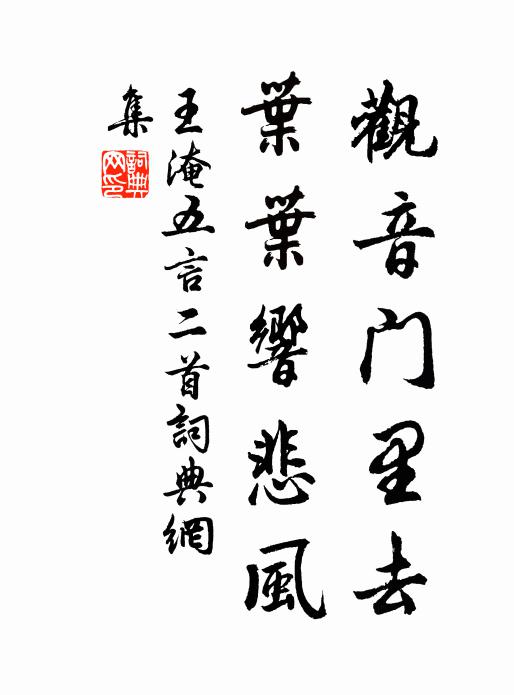 觀音門里去
葉葉響悲風
王淹五言二首詞典網
集
詞典
网印